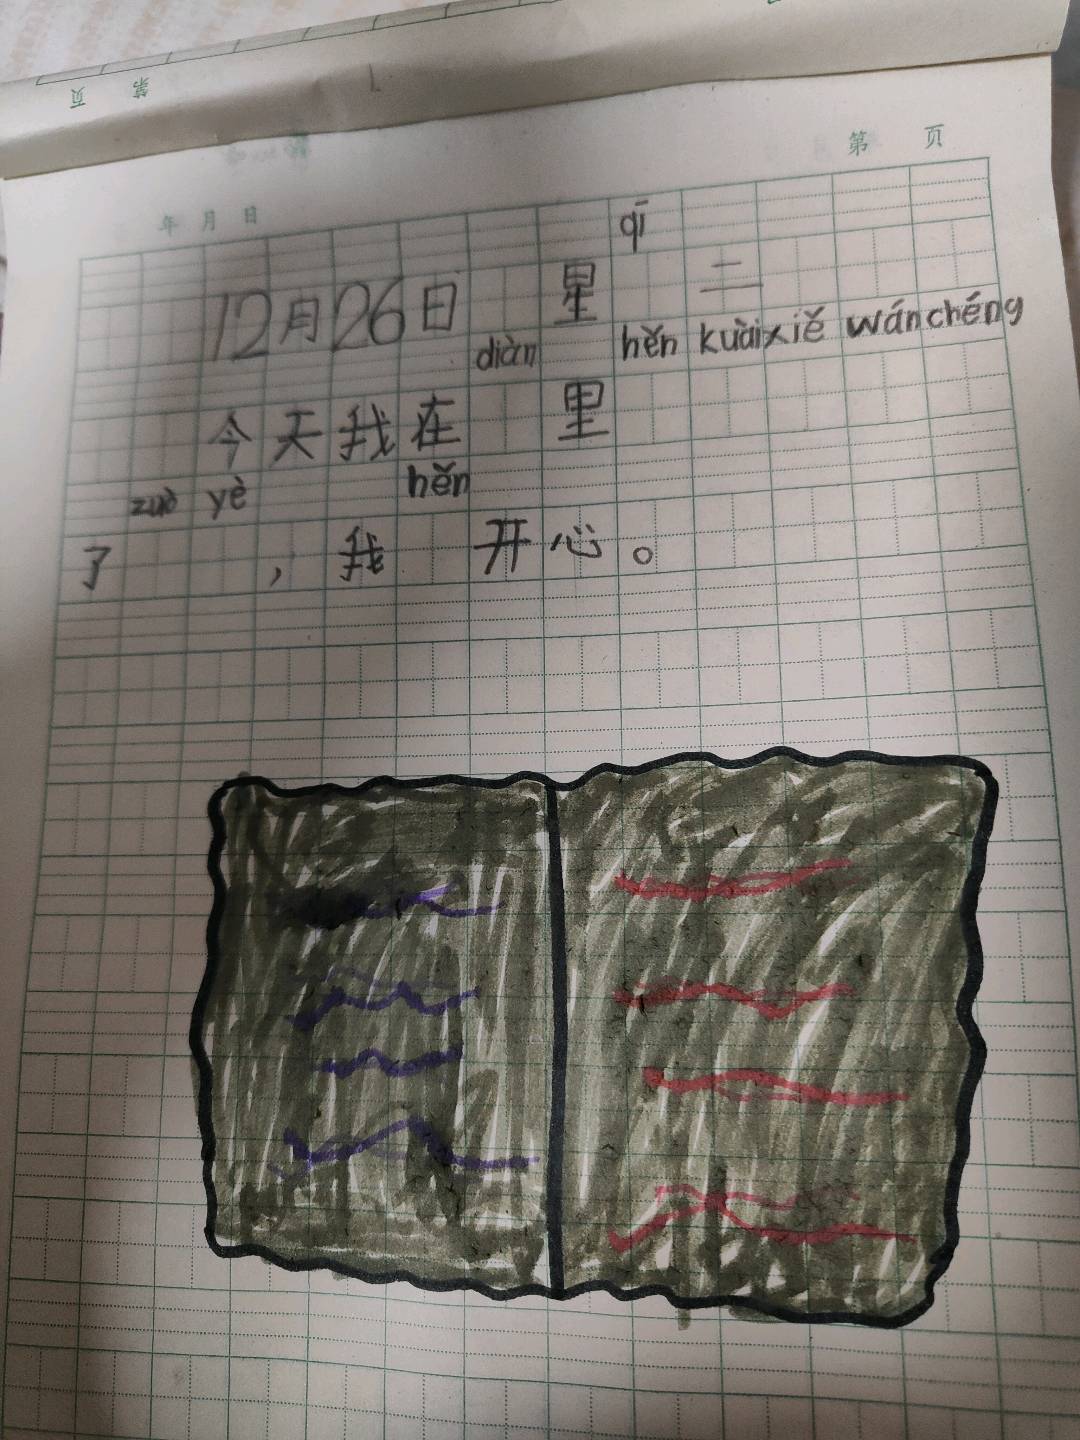 第 页
第 页
年 月 日
qī
12月26日 星 二
diàn hěn kuàixiě wánchéng
今天我在 里
zuò yè hěn
了 ，我 开心。